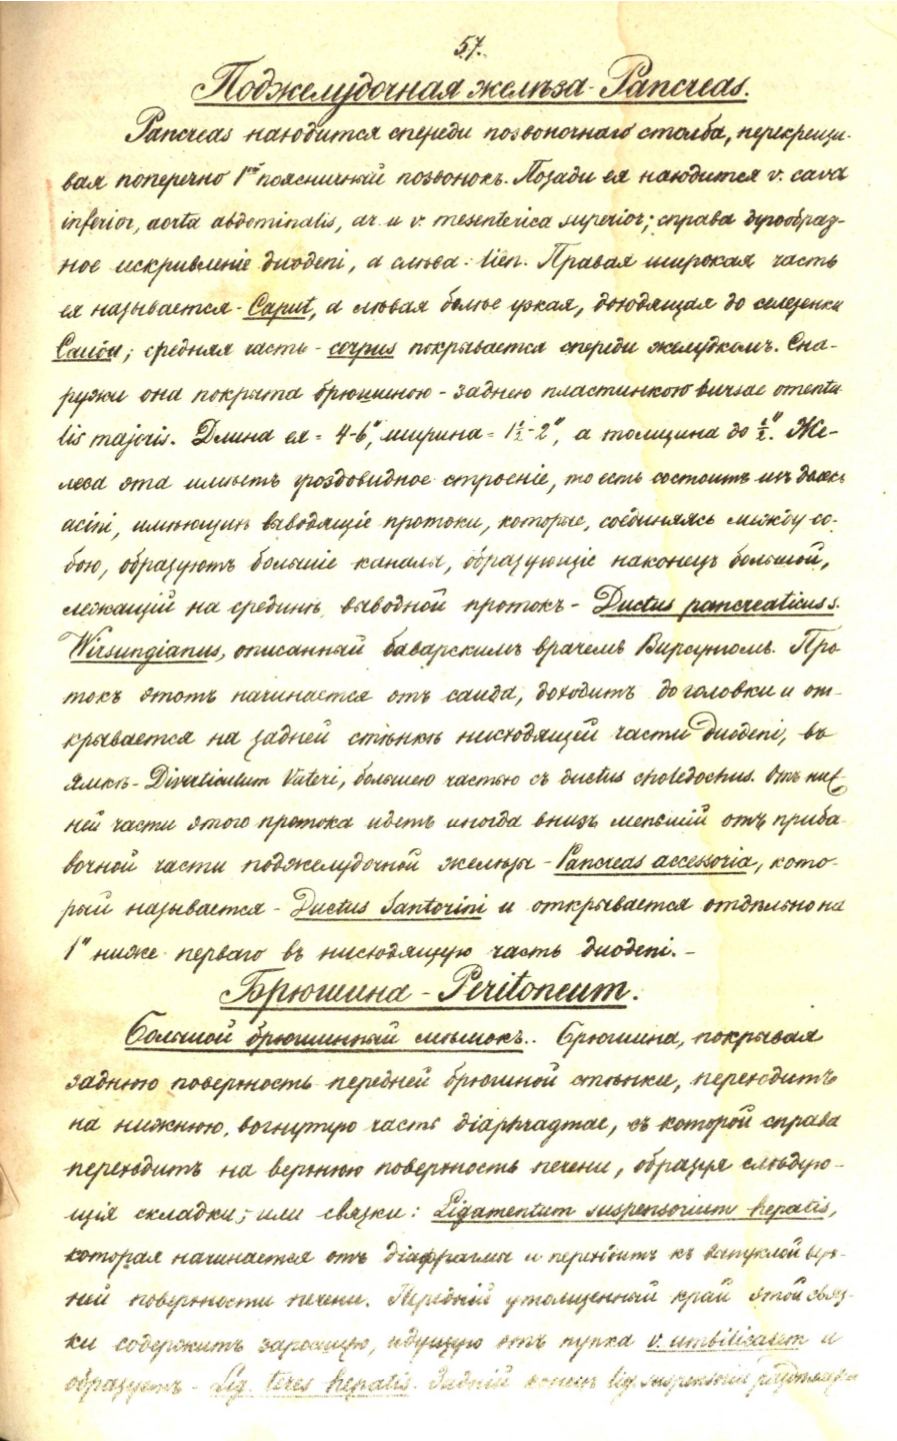 57.
Поджелудочная желѣза - Pancreas.
Pancreas находится спереди позвоночнаго столба, перекрещи-
вая поперечно 1ый поясничный позвонокъ. Позади ея находится v. cava
inferior, aorta abdominalis, ar. и v. mesenterica superior; справа дугообраз-
ное искривленіе duodeni, а слѣва - lien. Правая широкая часть
ея называется - Caput, а лѣвая болѣе узкая, доходящая до селезенки
Cauda; средняя часть - corpus покрывается спереди желудкомъ. Сна-
ружи она покрыта брюшиною - заднею пластинкою bursae omenta
lis majoris. Длина ея = 4-6", ширина = 1½-2", а толщина до ½". Же-
леза эта имѣетъ гроздовидное строеніе, то есть состоитъ изъ долекъ
acini, имѣющихъ выводящіе протоки, которые, соединяясь между со-
бою, образуютъ большіе каналы, образующіе наконецъ большой,
лежащій на срединѣ выводной протокъ - Ductus pancreaticus s.
Wirsungianus, описанный баварскимъ врачемъ Вирсунгомъ. Про
токъ этотъ начинается отъ cauda, доходитъ до головки и от-
крывается на задней стѣнкѣ нисходящей части duodeni, въ
ямкѣ - Diverticulum Vateri, большею частью съ ductus choledochus. Отъ ниж
ней части этого протока идетъ иногда внизъ меньшій отъ приба
вочной части поджелудочной желѣзы - Pancreas accessoria, кото-
рый называется - Ductus Santorini и открывается отдѣльно на
1" ниже перваго въ нисходящую часть duodeni. -
Брюшина - Peritoneum.
Большой брюшинный мѣшокъ. Брюшина, покрывая
заднюю поверхность передней брюшной стѣнки, переходитъ
на нижнюю, вогнутую часть diaphragmae, съ которой справа
переходитъ на верхнюю поверхность печени, образуя слѣдую-
щія складки, или связки: Ligamentum suspensorium hepatis,
которая начинается отъ діафрагмы и переходитъ къ выпуклой верх-
ней поверхности печени. Передній утолщенный край этой связ-
ки содержитъ заросшую, идущую отъ пупка v. umbilicalem и
образуетъ - Lig. teres hepatis. Задній конецъ lig. suspensorii